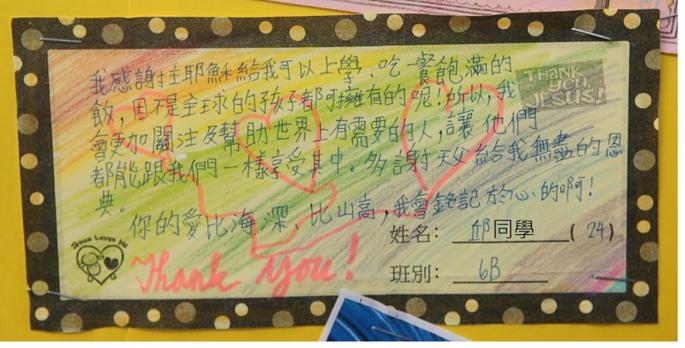 我感謝主耶穌給我可以上學、吃一餐飽滿的
飯，因不是全球的孩子都可擁有的呢！所以，我
會更加關注及幫助世界上有需要的人，讓他們
都能跟我們一樣享受其中。多謝天父給我無盡的恩
典。
你的愛比海深、比山高，我會銘記於心的啊！
THANK
you,
JESUS!
姓名： 邱同學 ( 24 )
班別： 6B
Jesus Loves Me
Thank You!